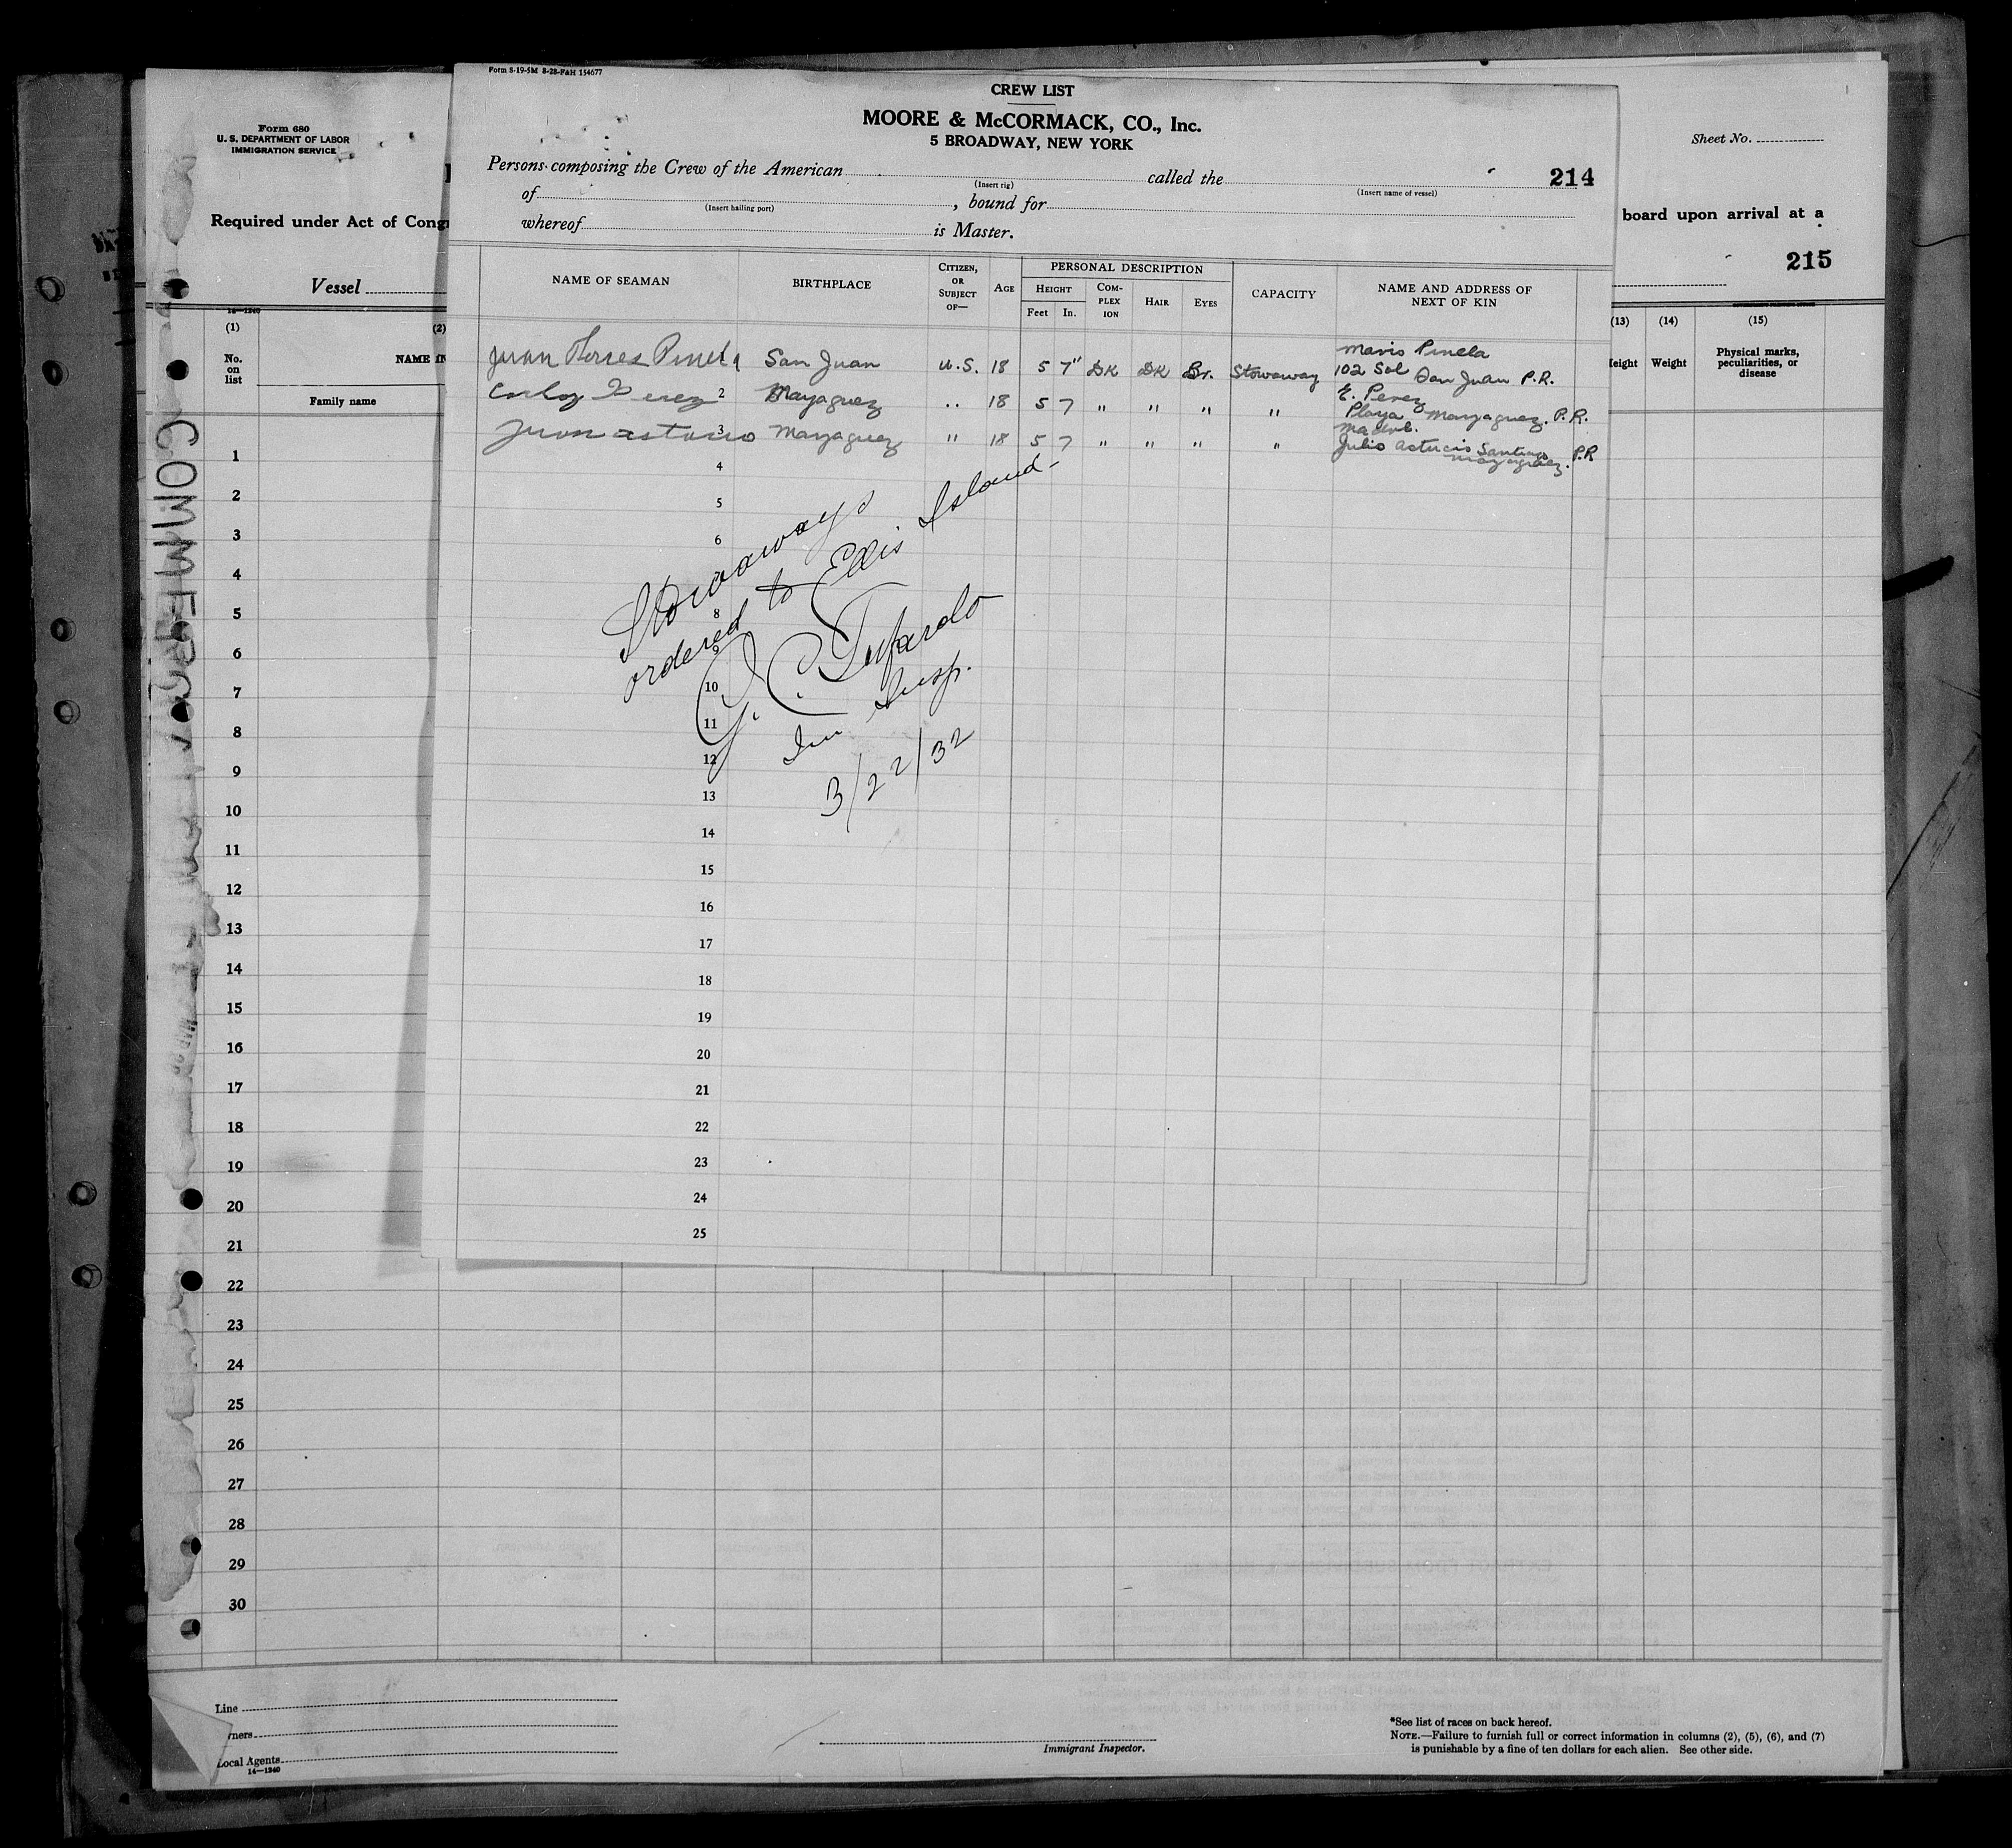 Form S-19-5M 8-28-FAH 154677
CREW LIST
MOORE & McCORMACK, CO., Inc.
5 BROADWAY, NEW YORK
Persons composing the Crew of the American called the 214
(Insert rig) (Insert name of vessel)
of , bound for
(Insert hailing port)
whereof is Master.
NAME OF SEAMAN BIRTHPLACE CITIZEN, OR SUBJECT OF— AGE PERSONAL DESCRIPTION CAPACITY NAME AND ADDRESS OF NEXT OF KIN
HEIGHT COM-PLEX ION HAIR EYES
Feet In.
Juan Torres Pinela San Juan U.S. 18 5 7" DK DK Br. Stowaway Pinela
102 Sol San Juan P.R.
2 Perez Mayaguez .. 18 5 7 " " " " E. Perez
Playa Mayaguez. P.R.
3 Juan Mayaguez " 18 5 7 " " " " Julio Santiago
Mayaguez. P.R
4
5
6
8
9
10
11
12
13
14
15
16
17
18
19
20
21
22
23
24
25
Stowaways
ordered to Ellis Island-
Im Insp.
3/22/32
Form 680
U. S. DEPARTMENT OF LABOR
IMMIGRATION SERVICE
Sheet No.
Required under Act of Cong
board upon arrival at a
215
Vessel
14—1240
(1) (2) (13) (14) (15)
No. on list NAME IN eight Weight Physical marks, peculiarities, or disease
Family name
1
2
3
4
5
6
7
8
9
10
11
12
13
14
15
16
17
18
19
20
21
22
23
24
25
26
27
28
29
30
Line
wners
Local Agents
14—1240
Immigrant Inspector.
*See list of races on back hereof.
NOTE.—Failure to furnish full or correct information in columns (2), (5), (6), and (7)
is punishable by a fine of ten dollars for each alien. See other side.